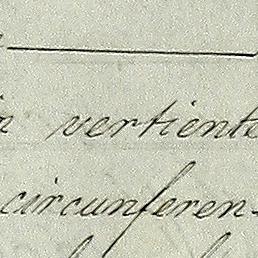 vertiente
circunferen-